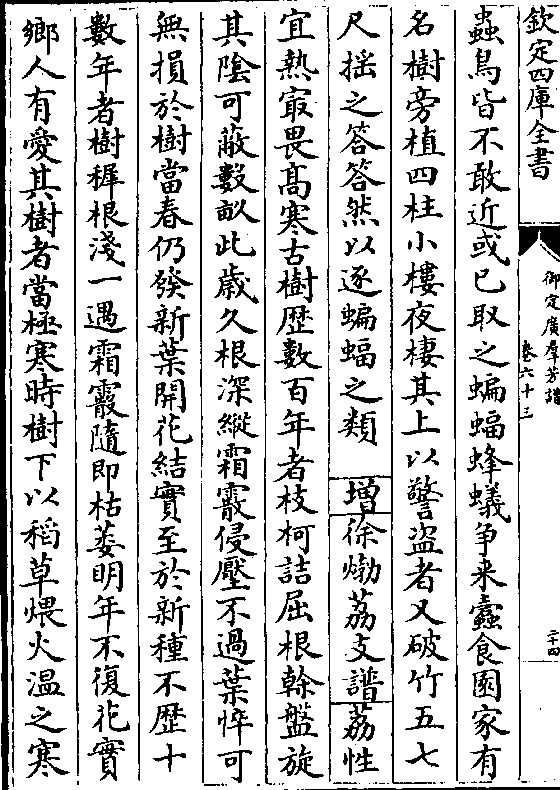 欽定四庫全書
御定廣羣芳譜
卷六十三
二十四
蟲鳥皆不敢近或已取之蝙蝠蜂蟻争来蠧食園家有
名樹旁植四柱小樓夜棲其上以警盗者又破竹五七
尺揺之答答然以逐蝙蝠之類 增徐㶿荔支譜荔性
宜熱㝡畏髙寒古樹歴數百年者枝柯詰屈根幹盤旋
其隂可蔽數畝此歳久根深縦霜霰侵壓不過葉悴可
無損於樹當春仍發新葉開花結實至於新種不歴十
數年者樹穉根淺一遇霜霰隨即枯萎明年不復花實
鄉人有愛其樹者當極寒時樹下以稻草煨火温之寒